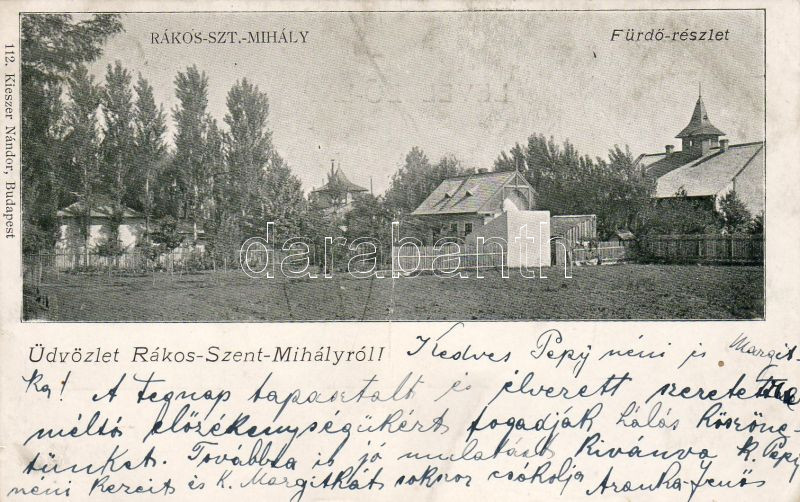 RÁKOS-SZT.-MIHÁLY
Fürdő-részlet
112. Kieszer Nándor, Budapest
darabanth
Üdvözlet Rákos-Szent-Mihályról!
Kedves Pepy néni is Margit-
ka! A tegnap tapasztalt és élvezett szeretetre
méltó előzékenységükért fogadják hálás köszöne-
tünket. Továbbra is jó mulatást kivánva K. Pepy
néni kezeit és K. Margitkát sokszor csókolja Aranka-Jenős